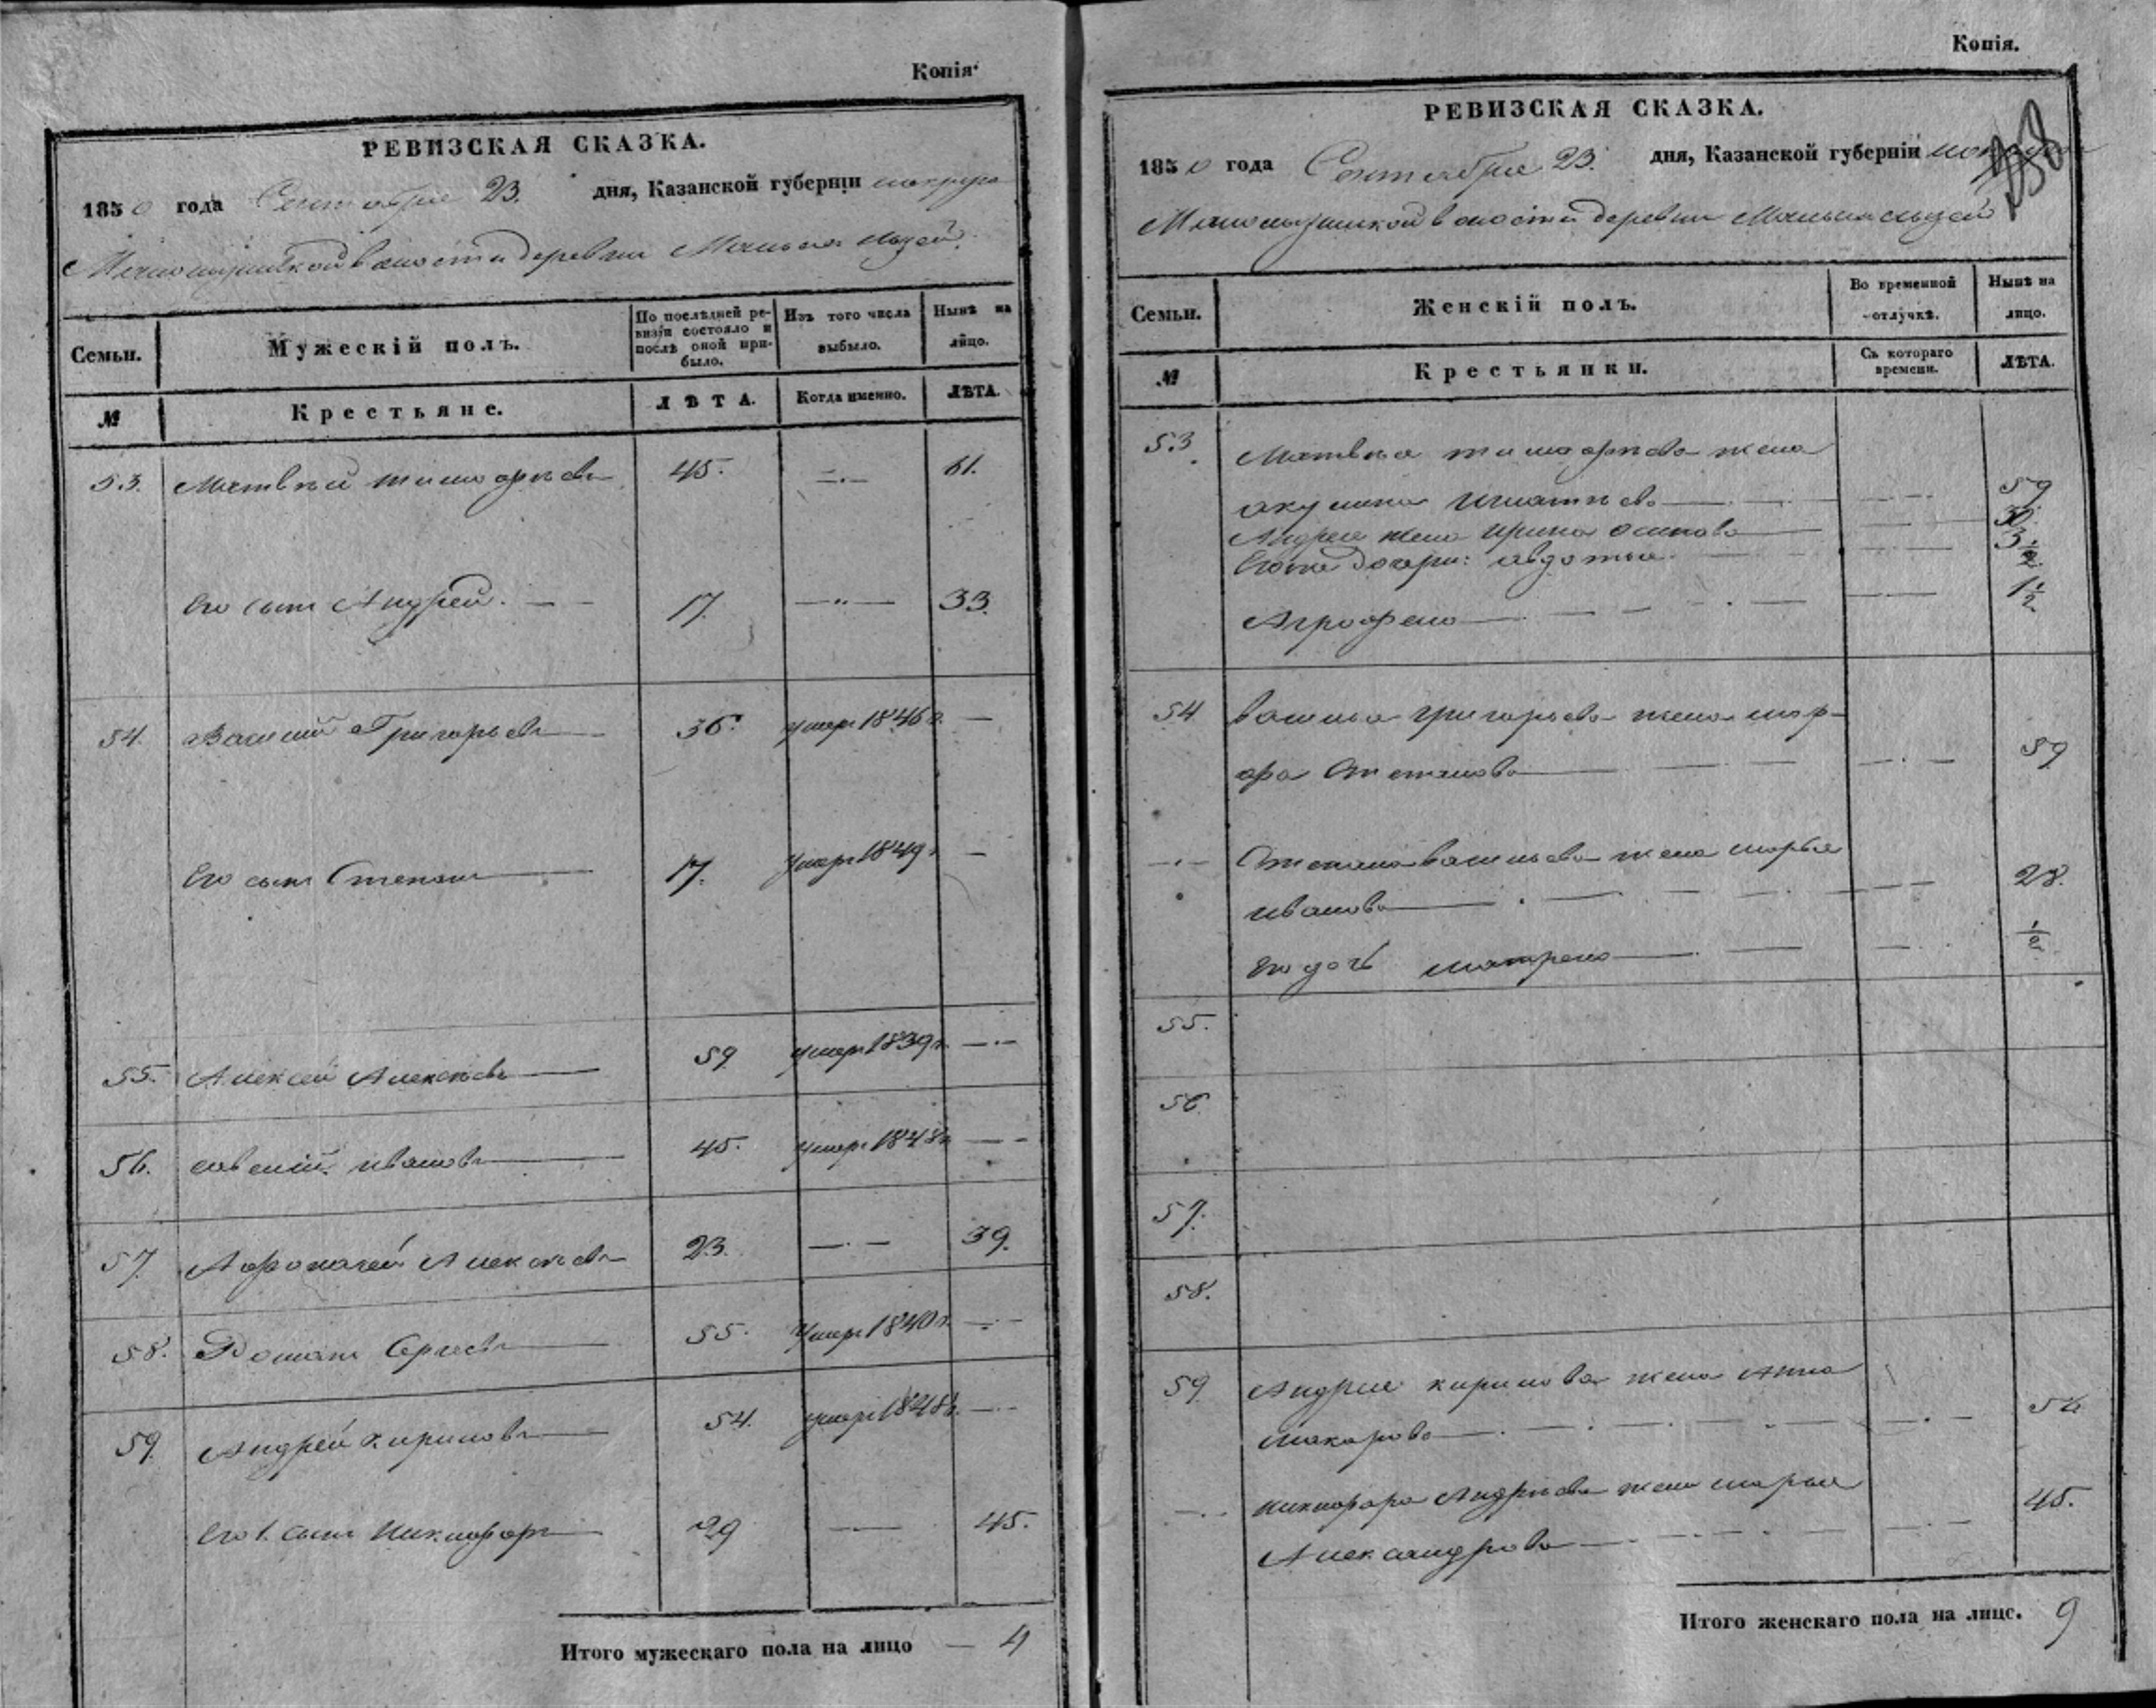 Копія.
РЕВИЗСКАЯ СКАЗКА.
1850 года Сентября 23. дня, Казанской губерніи
деревни
Семьи.
Мужескій полъ.
По послѣдней ре-
визіи состояло и
послѣ оной при-
было.
Изъ того числа
выбыло.
Нынѣ на
лицо.
№
Крестьяне.
ЛѢТА.
Когда именно.
ЛѢТА.
53. Матвѣй 45. 61.
Его сынъ Андрей. 17. 33.
54. Василий Григорьевъ 36. умеръ 1846 г.
Его сынъ Степанъ 17. умеръ 1849 г.
55. Алексей Алексѣевъ 59 умеръ 1839 г.
56. Савелий Ивановъ 45. умеръ
57. Афонасей Алексѣевъ 23. 39.
58. Романъ Сергеевъ 55. умеръ 1840 г.
59. Андрей Кириловъ 54. умеръ 1848 г.
Его 1. сынъ Никифоръ 29 45.
Итого мужескаго пола на лицо 4
Копія.
РЕВИЗСКАЯ СКАЗКА.
1850 года Сентября 23. дня, Казанской губерніи
деревни
Семьи.
Женскій полъ.
Во временной
отлучкѣ.
Нынѣ на
лицо.
№
Крестьянки.
Съ котораго
времени.
ЛѢТА.
53. Матвѣя жена
акулина Игнатьева 59
Андрея жена Ирина Осипова 30.
Егоже дочери: авдотья 3 1/2
Аграфена 1 1/2
54 Василья Григорьева жена мар-
фа Степанова 59
Степана васильева жена марья
иванова 28.
Его дочь матрена 1/2
55.
56
57.
58.
59 Андрея кирилова жена Анна
макарова
никифора Андрѣева жена марья
Александрова 45.
Итого женскаго пола на лицо. 9